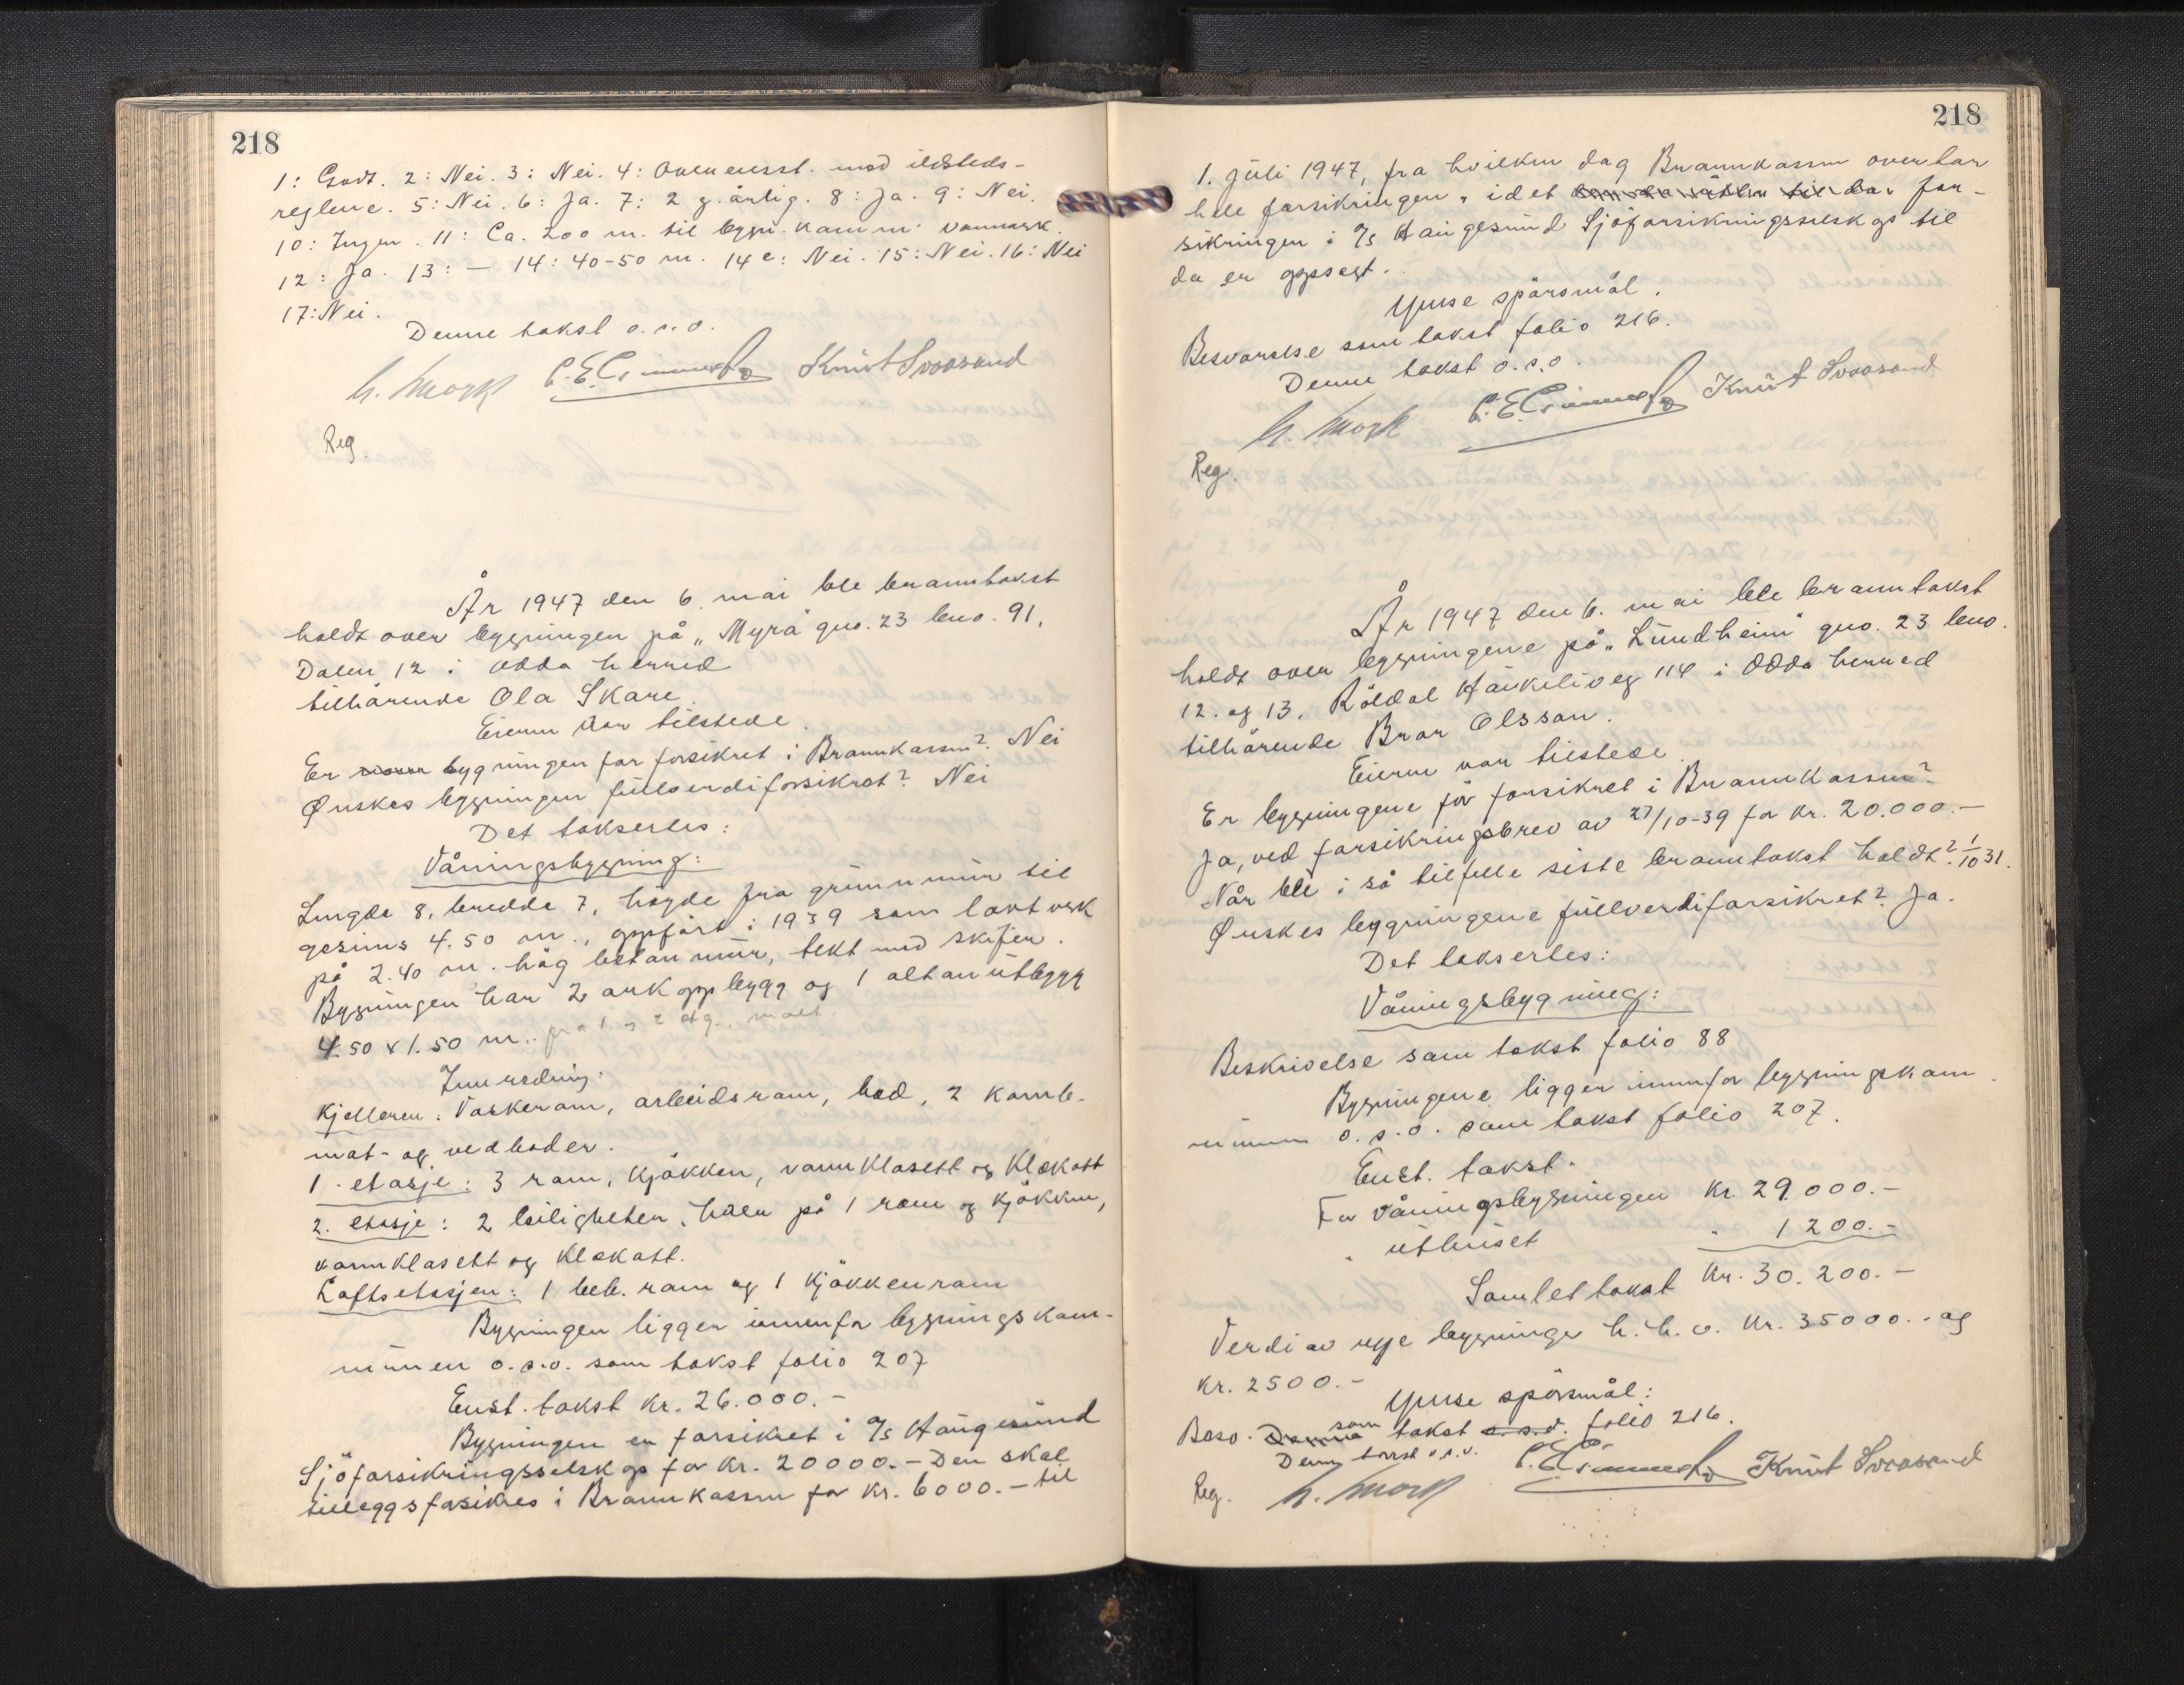 218
1: Godt. 2: Nei. 3: Nei. 4: Overensst. med ildsteds-
reglene. 5: Nei. 6: Ja. 7: 2 g. årlig. 8: Ja. 9: Nei.
10: Ingen. 11: Ca. 200 m. til bygn. komm. vannverk.
12: Ja. 13: — 14: 40-50 m. 14e: Nei. 15: Nei. 16: Nei
17: Nei.
Denne takst o.s.v.
H. Mork Knut Svaasand
Reg.
År 1947 den 6. mai ble branntakst
holdt over bygningen på „Myra" gno. 23 bno. 91,
Dalen 12 i Odda herred
tilhørende Ola Skare.
Eieren var tilstede.
Er bygningen før forsikret i Brannkassen? Nei
Ønskes bygningen fullverdiforsikret? Nei
Det taksertes:
Våningsbygning:
Lengde 8, bredde 7, høyde fra grunnmur til
gesims 4.50 m., oppført i 1939 som laftverk
på 2.40 m. høg betonmur, tekt med skifer.
Bygningen har 2 arkoppbygg og 1 altanutbygg
4.50 x 1.50 m. fra 1 - 2 etg., malt.
Innredning:
Kjelleren: Vaskerom, arbeidsrom, bad, 2 komb.
mat- og vedboder.
1. etasje: 3 rom, kjøkken, vannklosett og kleskott
2. etasje: 2 leiligheter, hver på 1 rom og kjøkken,
vannklosett og kleskott.
Loftsetasjen: 1 beb. rom og 1 kjøkkenrom
Bygningen ligger innenfor bygningskom-
munen o.s.v. som takst folio 207
Enst. takst kr. 26.000.-
Bygningen er forsikret i A/S Haugesund
Sjøforsikringsselskap for kr. 20000.- Den skal
tilleggsforsikres i Brannkassen for kr. 6000.- til
218
1. juli 1947, fra hvilken dag Brannkassen overtar
hele forsikringen, idet da for-
sikringen i A/S Haugesund Sjøforsikringsselskap til
da er oppsagt.
Ymse spørsmål.
Besvarelse som takst folio 216.
Denne takst o.s.v.
H. Mork Knut Svaasand
Reg.
År 1947 den 6. mai ble branntakst
holdt over bygningene på „Lundheim" gno. 23 bno.
12. og 13, Röldal Haukeliveg 114 i Odda herred
tilhørende Bror Olsson.
Eieren var tilstede.
Er bygningene før forsikret i Brannkassen?
Ja, ved forsikringsbrev av 27/10-39 for kr. 20.000.-
Når ble i så tilfelle siste branntakst holdt? 1/10 31.
Ønskes bygningene fullverdiforsikret? Ja.
Det taksertes:
Våningsbygning:
Beskrivelse som takst folio 88
Bygningene ligger innenfor bygningskom-
munen o.s.v. som takst folio 207.
Enst. takst.
For våningsbygningen kr. 29.000.-
" uthuset " 1200.-
Samlet takst kr. 30.200.-
Verdi av nye bygninger h.h.v. kr. 35000.- og
kr. 2500.-
Ymse spørsmål:
Besv. Denne som takst o.s.v. folio 216.
Denne takst o.s.v.
Reg. H. Mork Knut Svaasand